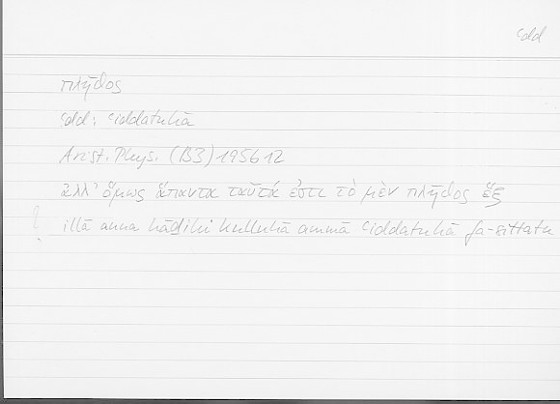 ʿdd
πλῆθος
ʿdd: ʿiddatuhā
Arist. Phys. (B3) 195b12
ἀλλ᾽ ὅμως ἅπαντα ταῦτά ἐστι τὸ μὲν πλῆθος ἕξ
illā anna hāḏihī kulluhā ammā ʿiddatuhā fa-sittatu